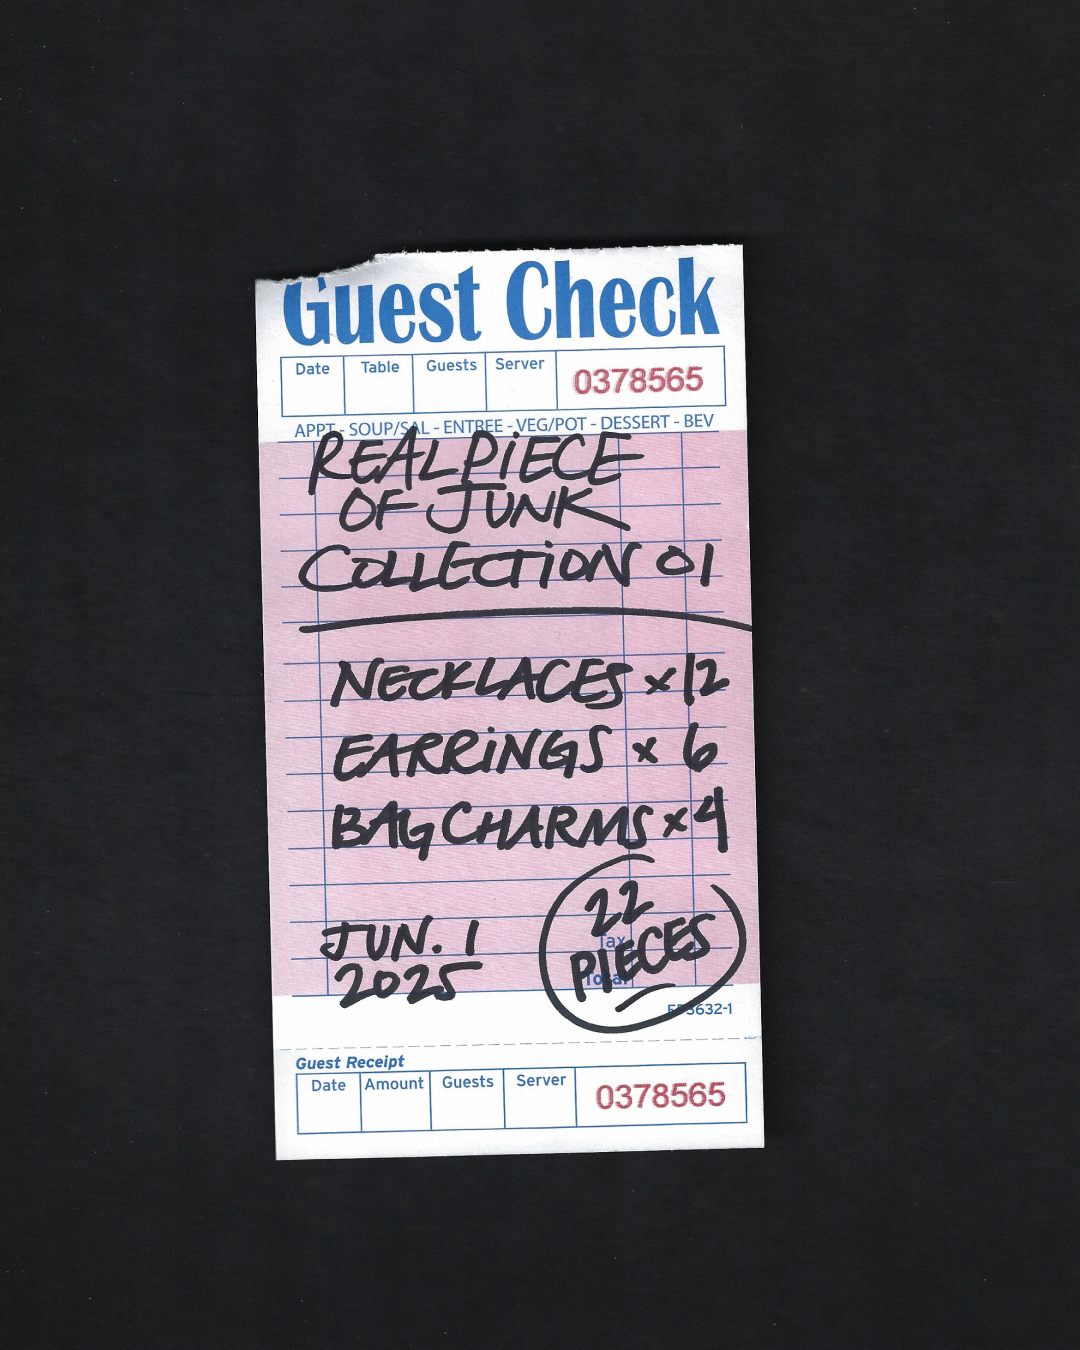 Guest Check
Date Table Guests Server 0378565
APPT - SOUP/SAL - ENTREE - VEG/POT - DESSERT - BEV
REAL PIECE
OF JUNK
COLLECTION 01
NECKLACES x 12
EARRINGS x 6
BAG CHARMS x 4
JUN. 1
2025
22
PIECES
Tax
Total
3632-1
Guest Receipt
Date Amount Guests Server 0378565